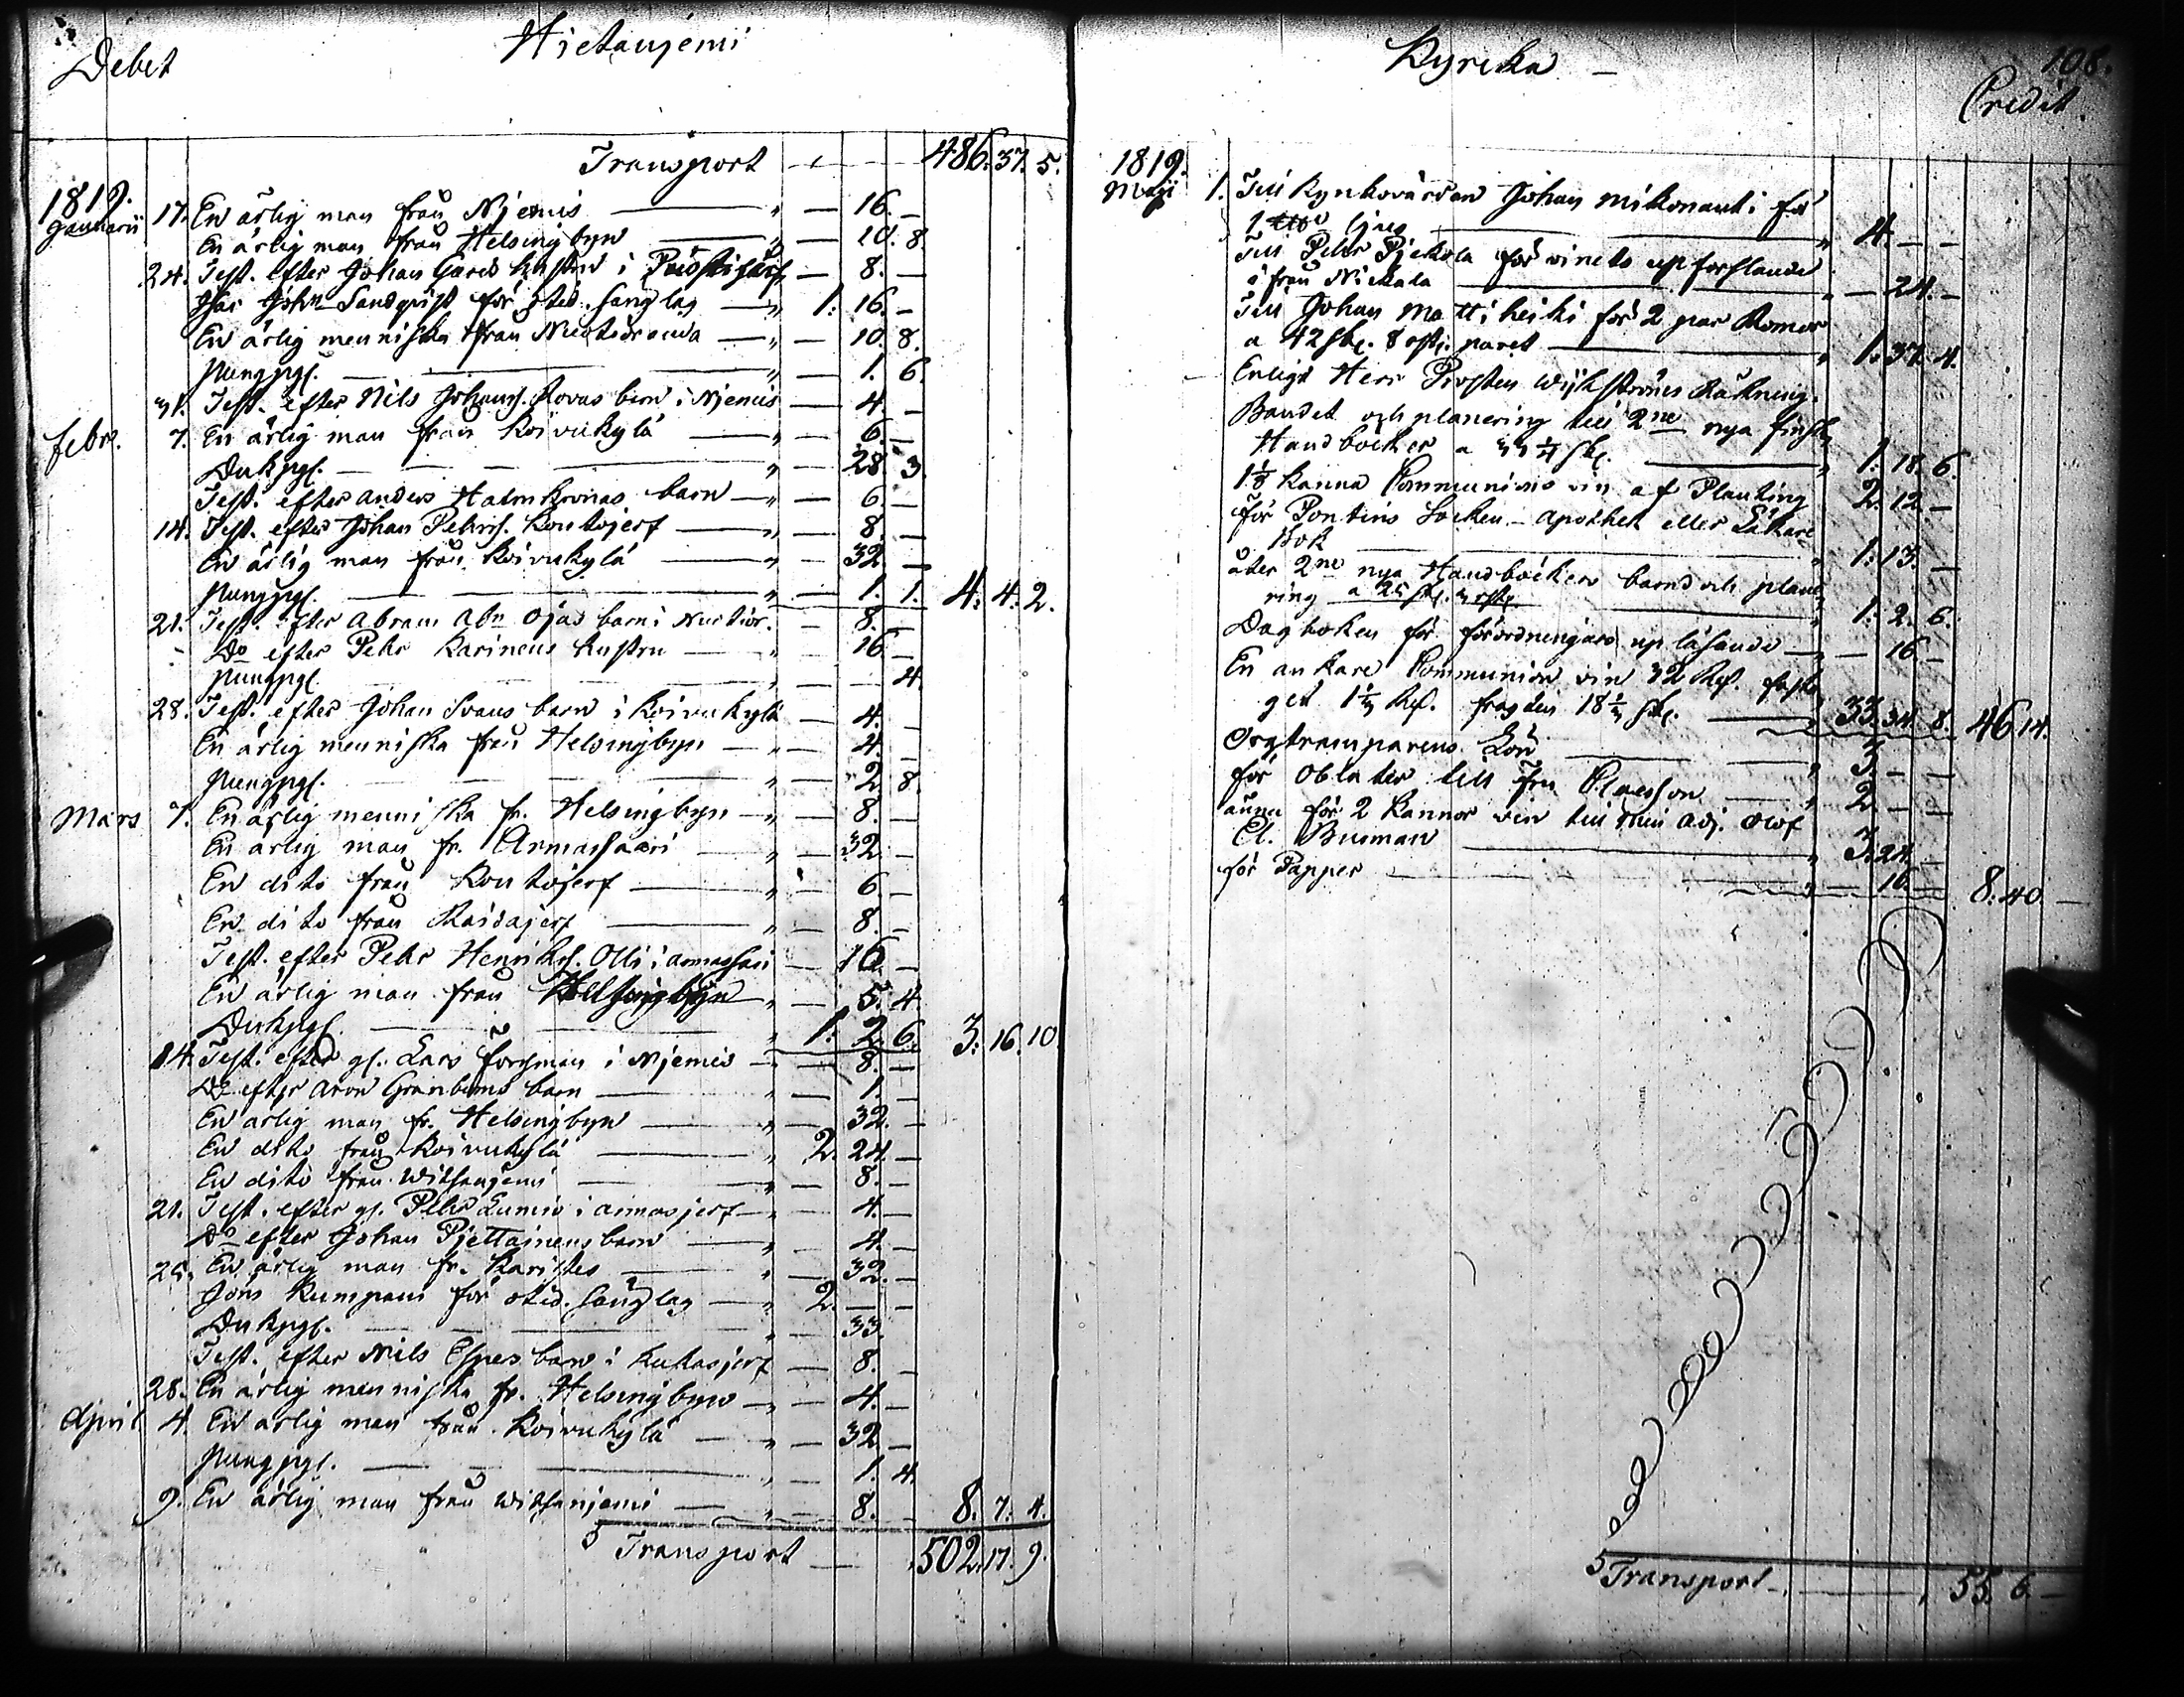 Debet
Hietaniemi
Transport — 486. 37. 5.
1819.
Januarii 17. En ärlig man från Njemis — 16. —
En ärlig man från Helsingbyn — 10. 8.
24. Test. efter Johan hustru i — 8. —
Joh: Sandqvist för otid. — 1. 16. —
En ärlig menniska från — 10. 8.
Pungpgr. — 1. 6.
31. Test. efter Nils Johans. Rovas barn i Njemis — 4. —
Febr. 7. En ärlig man från Koivukylä — 6. —
Dukpgr. — 28. 3.
Test. efter Anders barn — 6. —
14. Test. efter Johan Pehrs. Kontojerf — 8. —
En ärlig man från Koivukylä — 32. —
Pungpgr. — 1. 1. 4. 4. 2.
21. Test. efter Abram Abr. Ojas barn i — 8. —
Do efter Pehr Karinens hustru — 16 —
Pungpgr. — 4.
28. Test. efter Johan Svans barn i Koivukylä — 4. —
En ärlig menniska från Helsingbyn — 4. —
Pungpgr. — 2. 8.
Mars 7. En ärlig menniska fr. Helsingbyn — 8. —
En ärlig man fr. Armassaari — 32. —
En dito från Kontojerf — 6 —
En dito från Raidajerf — 8. —
Test. efter Pehr Henriks. Olli i Armassari — 16. —
En ärlig man från Helsingbyn — 5. 4.
Dukpgr. — 1. 2. 6. 3. 16. 10
14. Test. efter gl. Lars Forsman i Njemis — 8. —
Do efter Aron Granbems barn — 1. —
En ärlig man fr. Helsingbyn — 32. —
En dito från Koivukylä — 2. 24. —
En dito från Witsaniemi — 8. —
21. Test. efter gl. Pehr i Armasjerf — 4. —
Do efter Johan Pjettäinens barn — 4. —
25. En ärlig man fr. Karistes — 32. —
Jöns Kumpani för otid. — 2. — —
Dukpgr. — 33.
Test. efter Nils Espes barn i Kukasjerf — 8. —
28. En ärlig menniska fr. Helsingbyn — 4. —
April 4. En ärlig man från Koivukylä — 32 —
Pungpgr. — 1. 4.
9. En ärlig man från Witsaniemi — 8. — 8. 7. 4.
Transport — 502. 17. 9.
Kyrcka —
108.
Credit
1819.
Maji 1. Till Kyrkovärden Johan Mikonanti för
1 ljus — 4. — —
Till Pehr Pjekola för vinets upforslande
ifrån Nickala — 24. —
Till Johan Mattiheiki för 2 par Komor
a 42 sk. 8 rst. paret — 1. 37. 4.
Enligt Herr Prosten Wijkströms Räkning.
Bandet och planering till 2ne nya finska
Handböcker a 33 1/4 sk. — 1. 18. 6.
1 1/8 kanna Communions vin af Planting 2. 12. —
för Pontins Socken-Apothek eller Läkare
Bok — 1. 13. —
åter 2ne nya Handböckers band och plane
ring a 25 sk. 3 rst. — 1. 2. 6.
Dagboken för förordningars upläsande — 16 —
En ankare Communion vin 32 Rd.
get 1 1/2 Rd. fragten 18 1/2 sk. — 33. 34. 8. 46. 14.
Orgtramparens Lön — 3. — —
för oblater till Fru Claesson — 2. — —
ännu för 2 kannor vin till Adj. Olof
Cl. Burman — 3. 24. —
för Papper — 16. — 8. 40. —
Transport — 55. 6. —